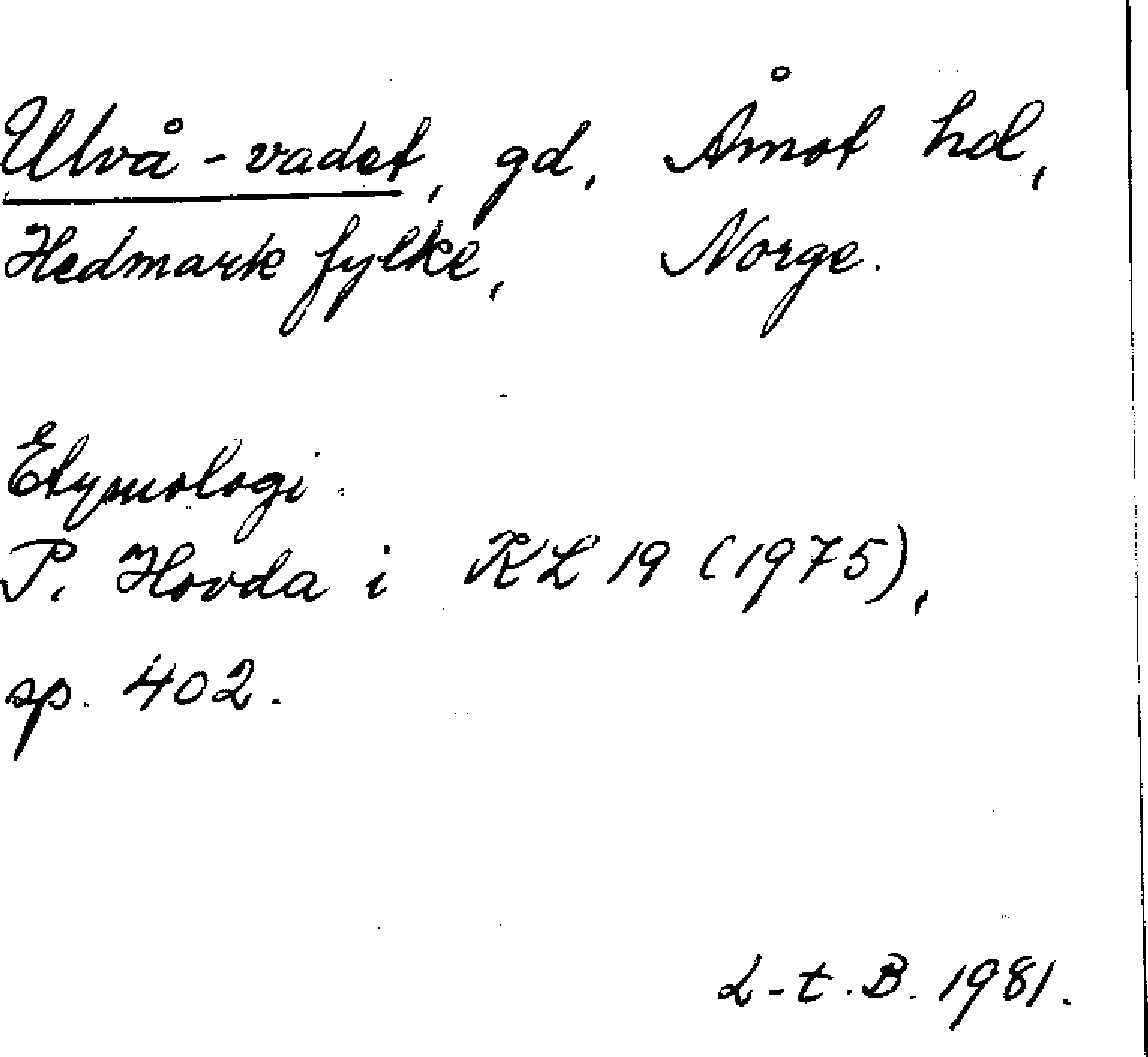 Ulvå-vadet, gd, Åmot hd,
Hedmark fylke, Norge.
Etymologi.
P. Hovda i KL 19 (1975),
sp. 402.
L-t. B. 1981.